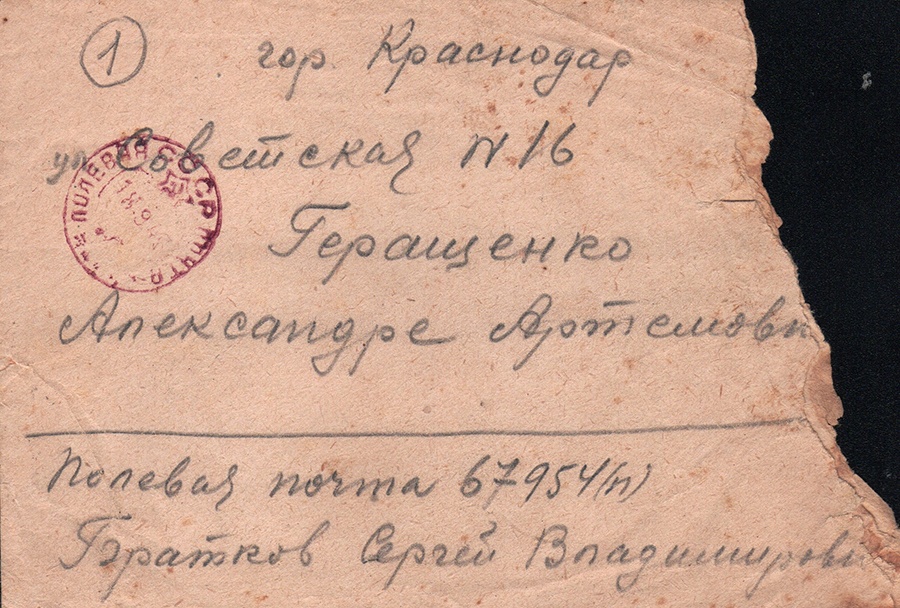 1
гор. Краснодар
ул Советская N 16
Геращенко
Александре Артемовн
Полевая почта 67954(п)
Братков Сергей Владимирови
СССР ПОЛЕВАЯ ПОЧТА